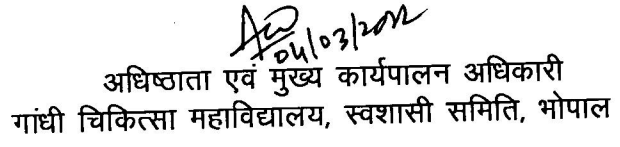 04/03/2012
अधिष्ठाता एवं मुख्य कार्यपालन अधिकारी
गांधी चिकित्सा महाविद्यालय, स्वशासी समिति, भोपाल